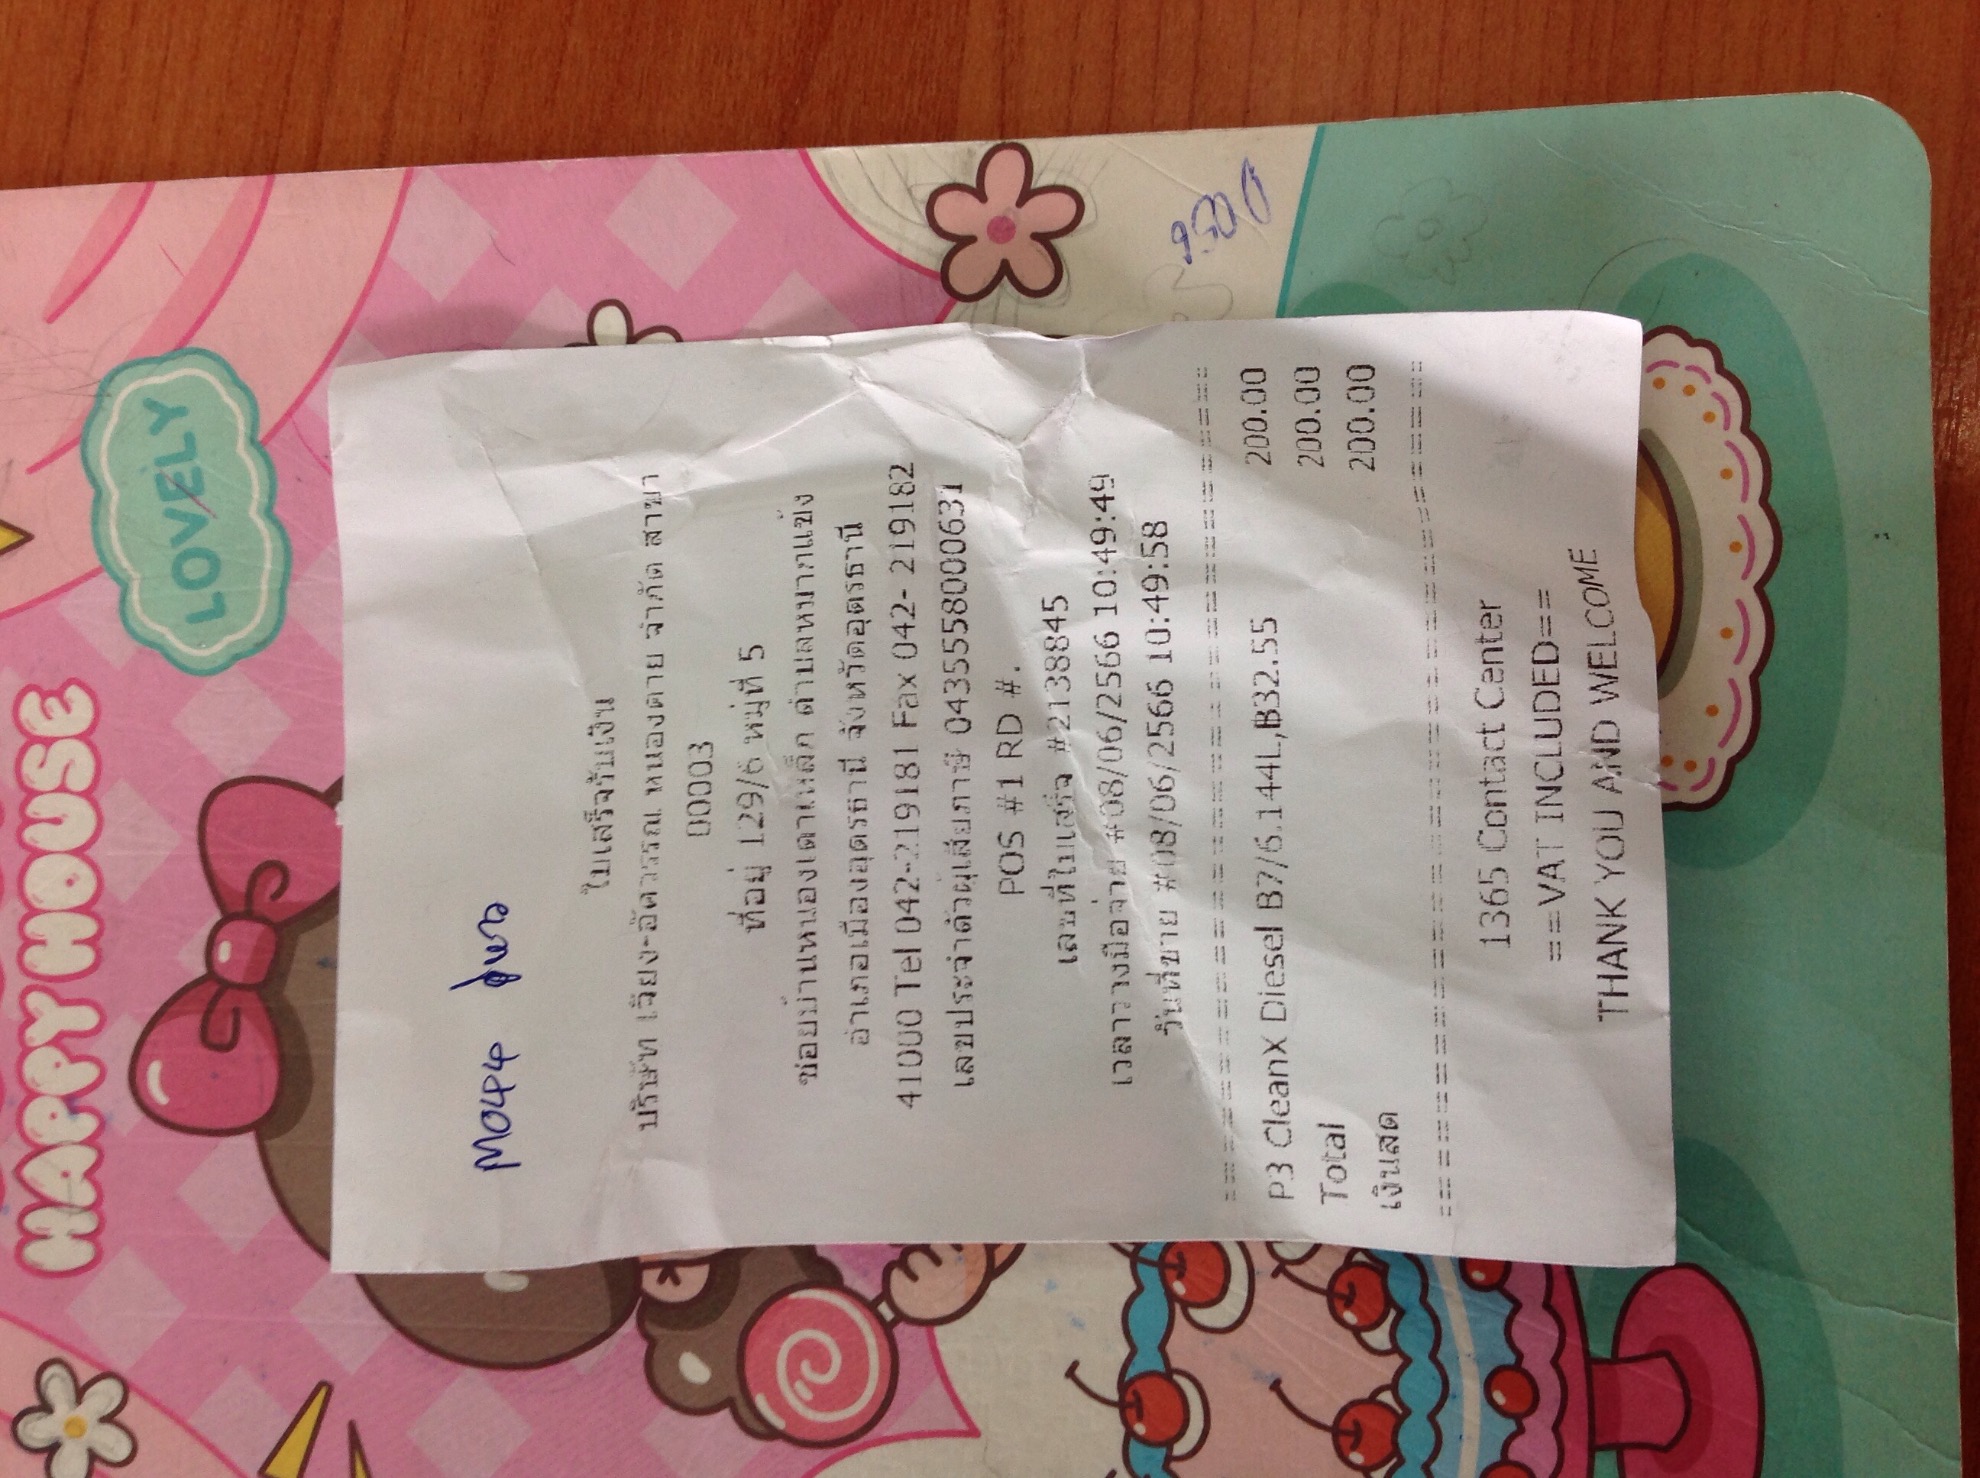 HAPPY HOUSE
LOVELY
M044
ใบเสร็จรับเงิน
บริษัท เวียง-อัควรรณ หนองตาย จำกัด สาขา
00003
ที่อยู่ 129/6 หมู่ที่ 5
ซอยบ้านหนองเตาเหล็ก ตำบลหมากแข้ง
อำเภอเมืองอุดรธานี จังหวัดอุดรธานี
41000 Tel 042-219181 Fax 042- 219182
เลขประจำตัวผู้เสียภาษี 0435558000631
POS #1 RD #.
เลขที่ใบเสร็จ #2138845
เวลาวางมือจ่าย #08/06/2566 10:49:49
วันที่ขาย #08/06/2566 10:49:58
P3 CleanX Diesel B7/6.144L,B32.55 200.00
Total 200.00
เงินสด 200.00
1365 Contact Center
==VAT INCLUDED==
THANK YOU AND WELCOME